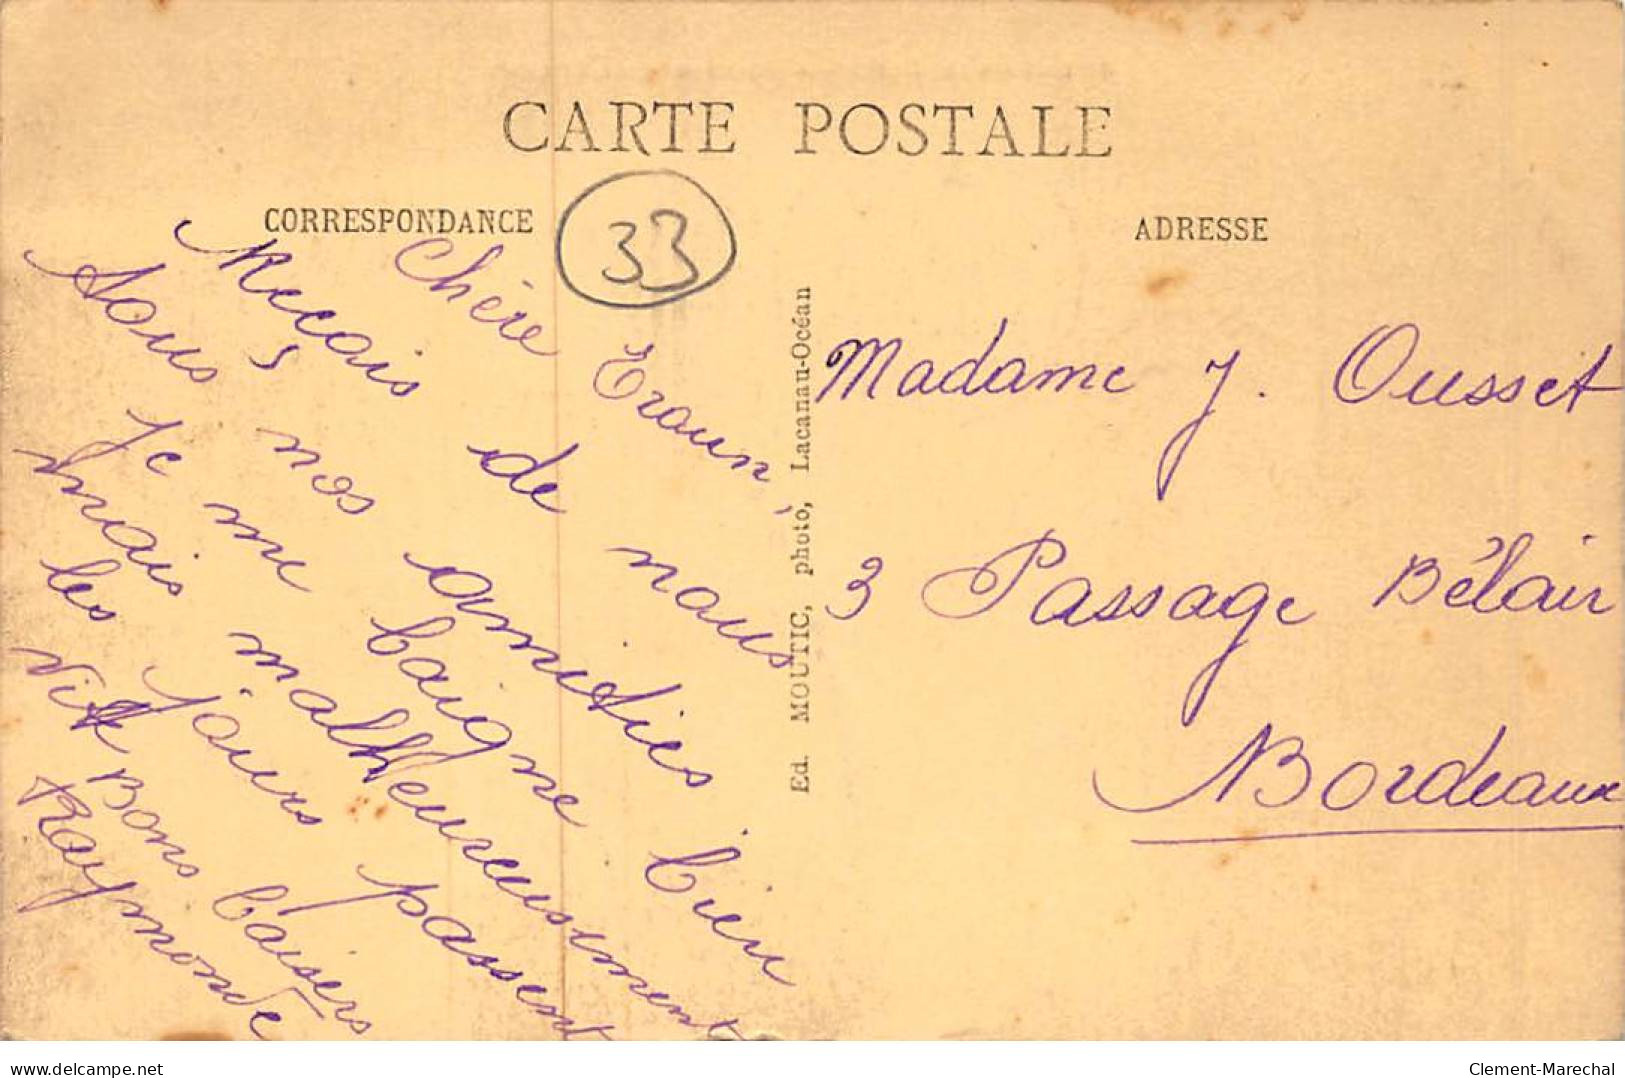 CARTE POSTALE
CORRESPONDANCE
33
ADRESSE
Chère
Reçois de nous
tous nos amitiés
Je me baigne bien
mais malheureusement
les jours passent
vite Bons baisers
Raymonde
Ed. MOUTIC, photo, Lacanau-Océan
Madame J. Ousset
3 Passage Bélair
Bordeaux
www.delcampe.net
Clement-Marechal